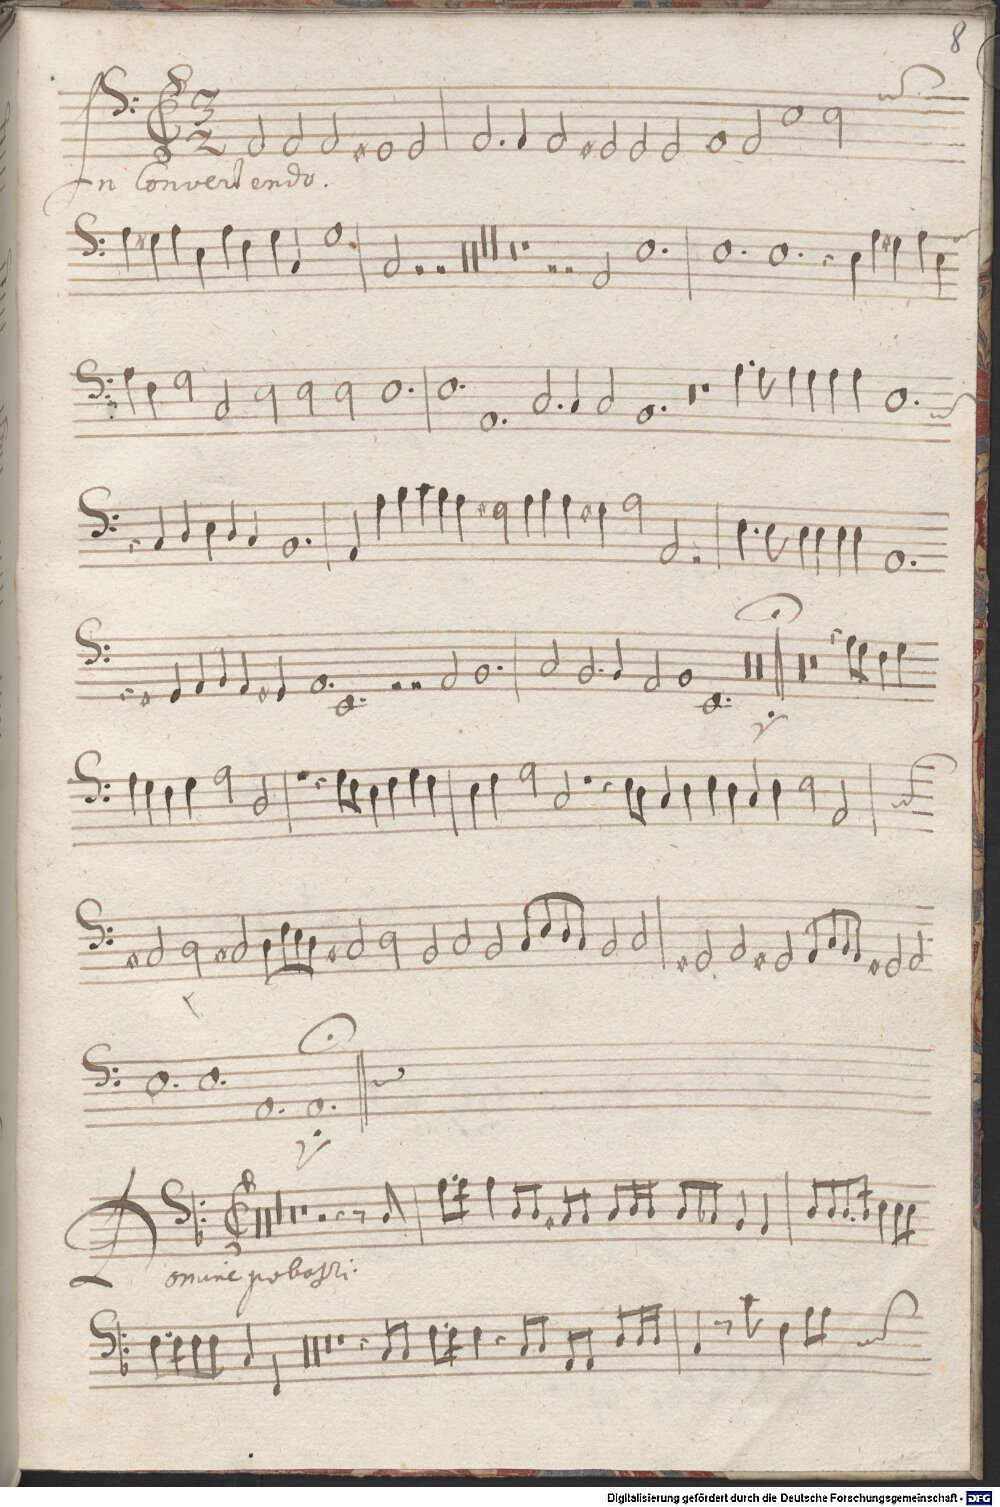 8
3
2
In Convertendo.
Domine probasti.
Digitalisierung gefördert durch die Deutsche Forschungsgemeinschaft - DFG